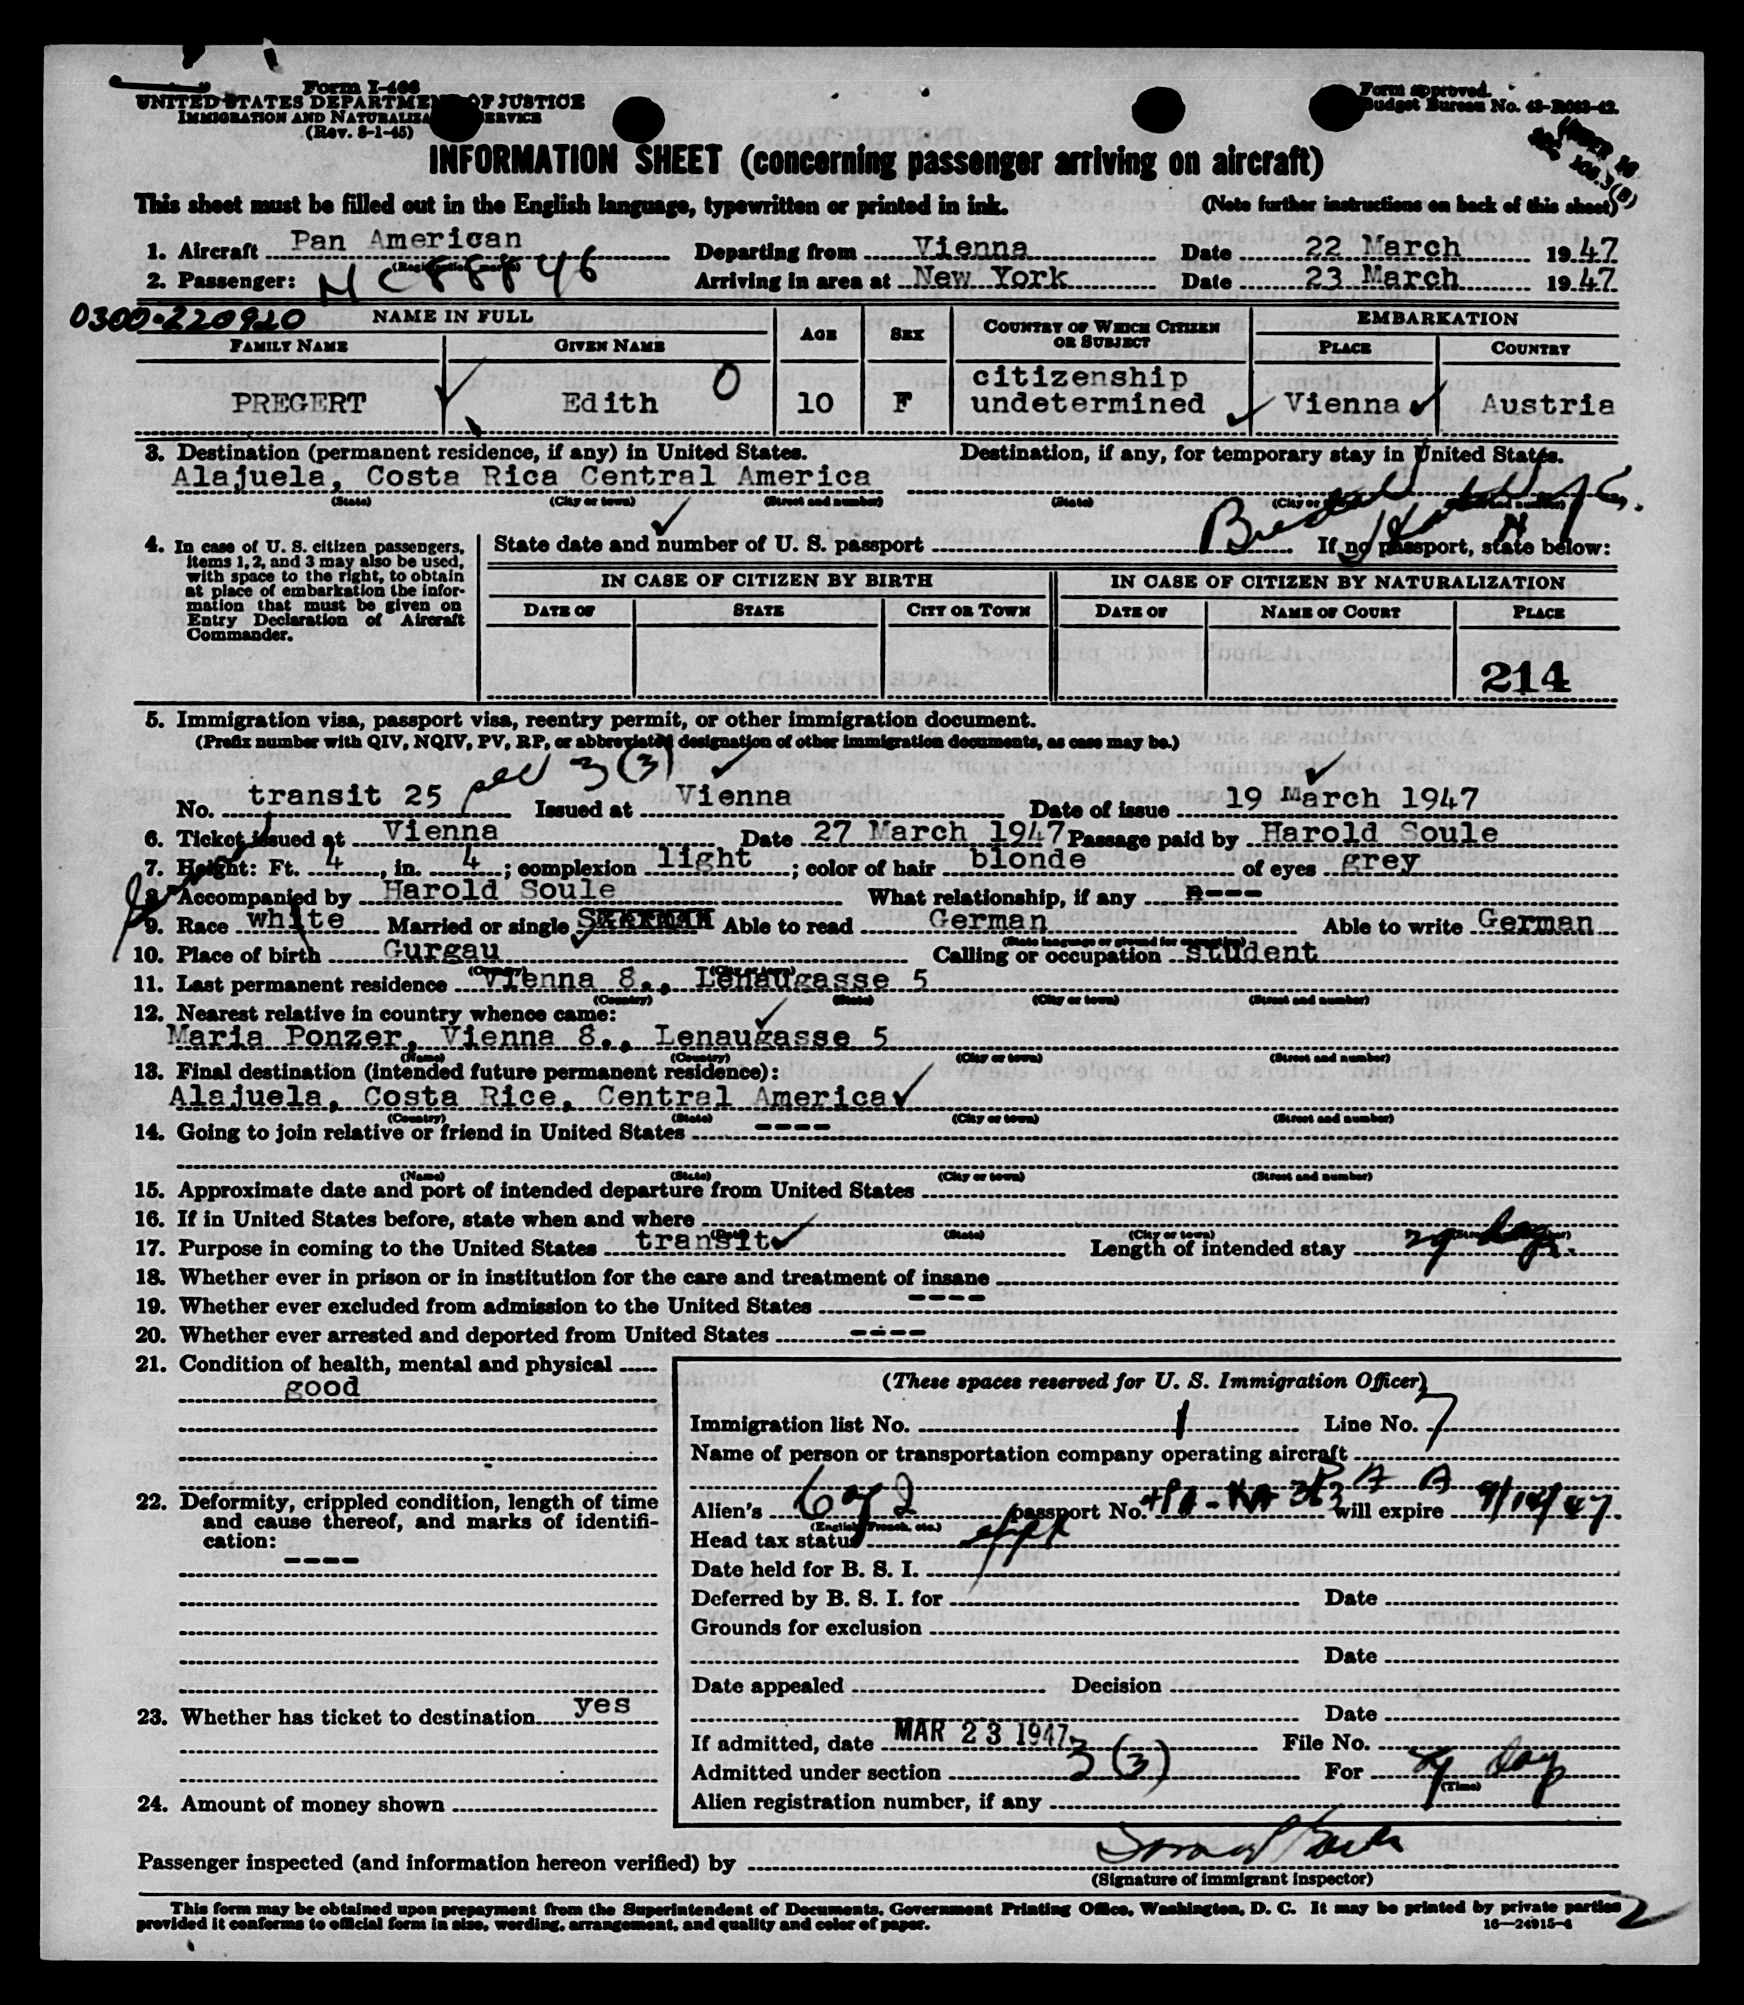 Form I-466
UNITED STATES DEPARTMENT OF JUSTICE
IMMIGRATION AND NATURALIZATION SERVICE
(Rev. 8-1-45)
Form approved.
Budget Bureau No. 43-R083-42.
INFORMATION SHEET (concerning passenger arriving on aircraft)
This sheet must be filled out in the English language, typewritten or printed in ink. (Note further instructions on back of this sheet)
1. Aircraft Pan American Departing from Vienna Date 22 March 1947
2. Passenger: NC 88846 Arriving in area at New York Date 23 March 1947
0300-220920 NAME IN FULL AGE SEX COUNTRY OF WHICH CITIZEN OR SUBJECT EMBARKATION
FAMILY NAME GIVEN NAME PLACE COUNTRY
citizenship
PREGERT Edith 0 10 F undetermined Vienna Austria
3. Destination (permanent residence, if any) in United States. Destination, if any, for temporary stay in United States.
Alajuela, Costa Rica Central America
(State) (City or town) (Street and number) (State) (City or town) (Street and number)
4. In case of U. S. citizen passengers, items 1, 2, and 3 may also be used, with space to the right, to obtain at place of embarkation the information that must be given on Entry Declaration of Aircraft Commander.
State date and number of U. S. passport If no passport, state below:
IN CASE OF CITIZEN BY BIRTH IN CASE OF CITIZEN BY NATURALIZATION
DATE OF STATE CITY OR TOWN DATE OF NAME OF COURT PLACE
214
5. Immigration visa, passport visa, reentry permit, or other immigration document.
(Prefix number with QIV, NQIV, PV, RP, or abbreviated designation of other immigration documents, as case may be.)
No. transit 25 sec 3(3) Issued at Vienna Date of issue 19 March 1947
6. Ticket issued at Vienna Date 27 March 1947 Passage paid by Harold Soule
7. Height: Ft. 4, in. 4; complexion light; color of hair blonde of eyes grey
8. Accompanied by Harold Soule What relationship, if any ----
9. Race white Married or single Able to read German Able to write German
(State language or ground for exemption)
10. Place of birth Gurgau Calling or occupation student
(Country) (City or town)
11. Last permanent residence Vienna 8., Lenaugasse 5
(Country) (State) (City or town) (Street and number)
12. Nearest relative in country whence came:
Maria Ponzer, Vienna 8., Lenaugasse 5
(Name) (Country) (City or town) (Street and number)
13. Final destination (intended future permanent residence):
Alajuela, Costa Rice, Central America
(Country) (State) (City or town) (Street and number)
14. Going to join relative or friend in United States ----
(Name) (State) (City or town) (Street and number)
15. Approximate date and port of intended departure from United States
16. If in United States before, state when and where
(Date) (State) (City or town) (Street and number)
17. Purpose in coming to the United States transit Length of intended stay 29 days.
18. Whether ever in prison or in institution for the care and treatment of insane
19. Whether ever excluded from admission to the United States ----
20. Whether ever arrested and deported from United States ----
21. Condition of health, mental and physical
good
22. Deformity, crippled condition, length of time and cause thereof, and marks of identification:
----
23. Whether has ticket to destination yes
24. Amount of money shown
(These spaces reserved for U. S. Immigration Officer)
Immigration list No. 1 Line No. 7
Name of person or transportation company operating aircraft
P A A
Alien's passport No. will expire 9/14/47.
(English, French, etc.)
Head tax status
Date held for B. S. I.
Deferred by B. S. I. for Date
Grounds for exclusion
Date
Date appealed Decision
Date
If admitted, date MAR 23 1947 File No.
Admitted under section 3(3) For 29 days
(Time)
Alien registration number, if any
Passenger inspected (and information hereon verified) by
(Signature of immigrant inspector)
This form may be obtained upon prepayment from the Superintendent of Documents, Government Printing Office, Washington, D. C. It may be printed by private parties
provided it conforms to official form in size, wording, arrangement, and quality and color of paper. 16—24915-4
2